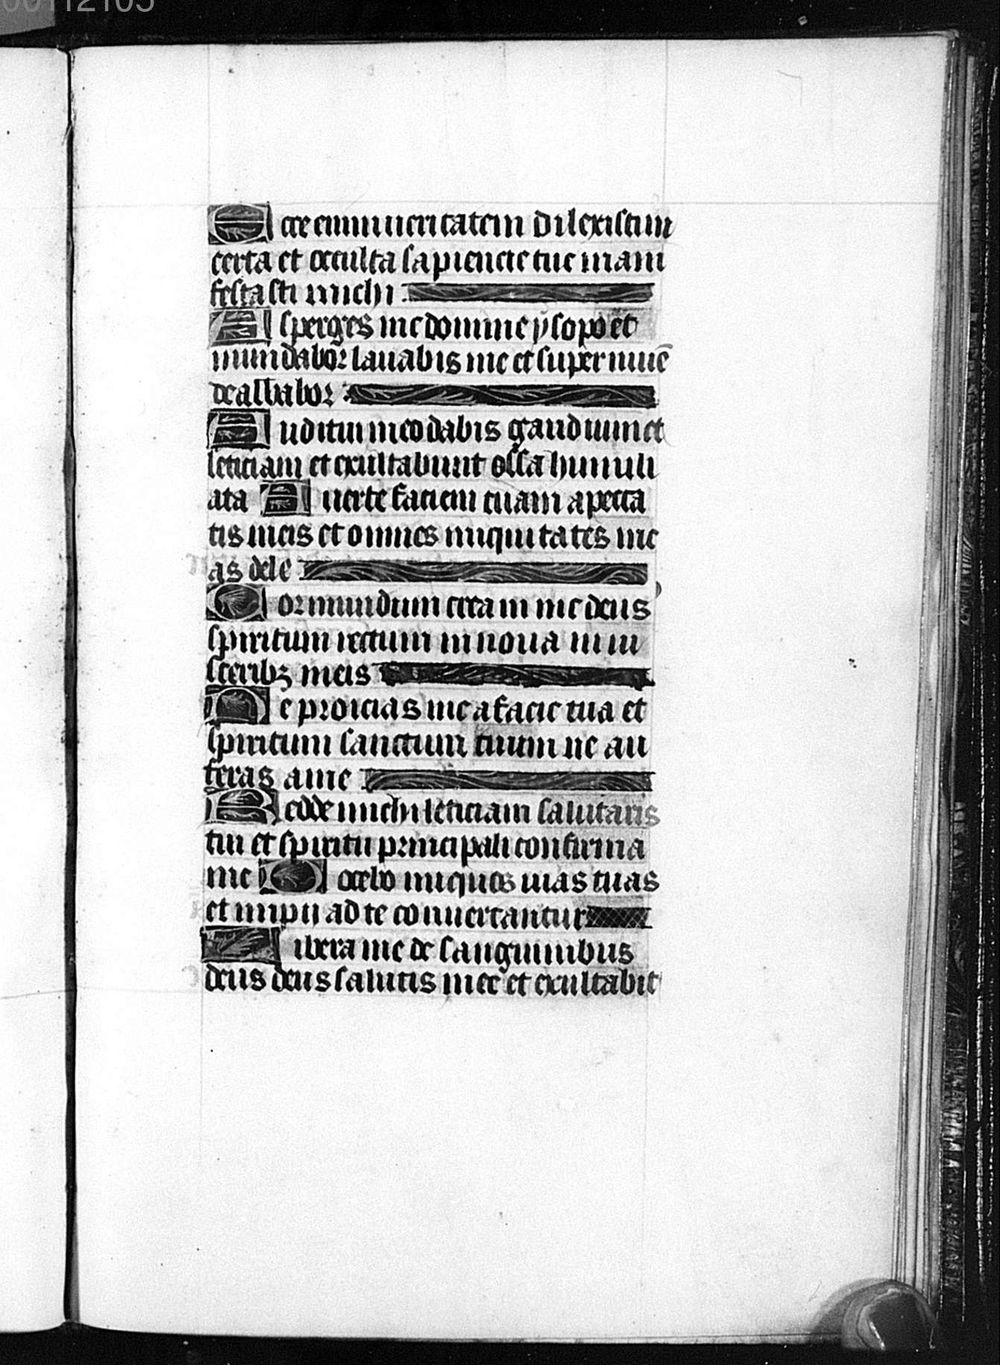 00112105
Ecce enim ueritatem dilexisti in
certa et occulta sapiencie tue mani
festasti michi
Asperges me domine ysopo et
mundabor lauabis me et super niuē
dealbabor
Auditui meo dabis gaudium et
leticiam et exultabunt ossa humili
ata Auerte faciem tuam a pecca
tis meis et omnes iniquitates me
as dele
Cor mundum crea in me deus
spiritum rectum innoua in ui
sceribꝫ meis
Ne proicias me a facie tua et
spiritum sanctum tuum ne au
feras a me
Redde michi leticiam salutaris
tui et spiritu principali confirma
me Docebo iniquos uias tuas
et impii ad te conuertantur
Libera me de sanguinibus
deus deus salutis mee et exultabit